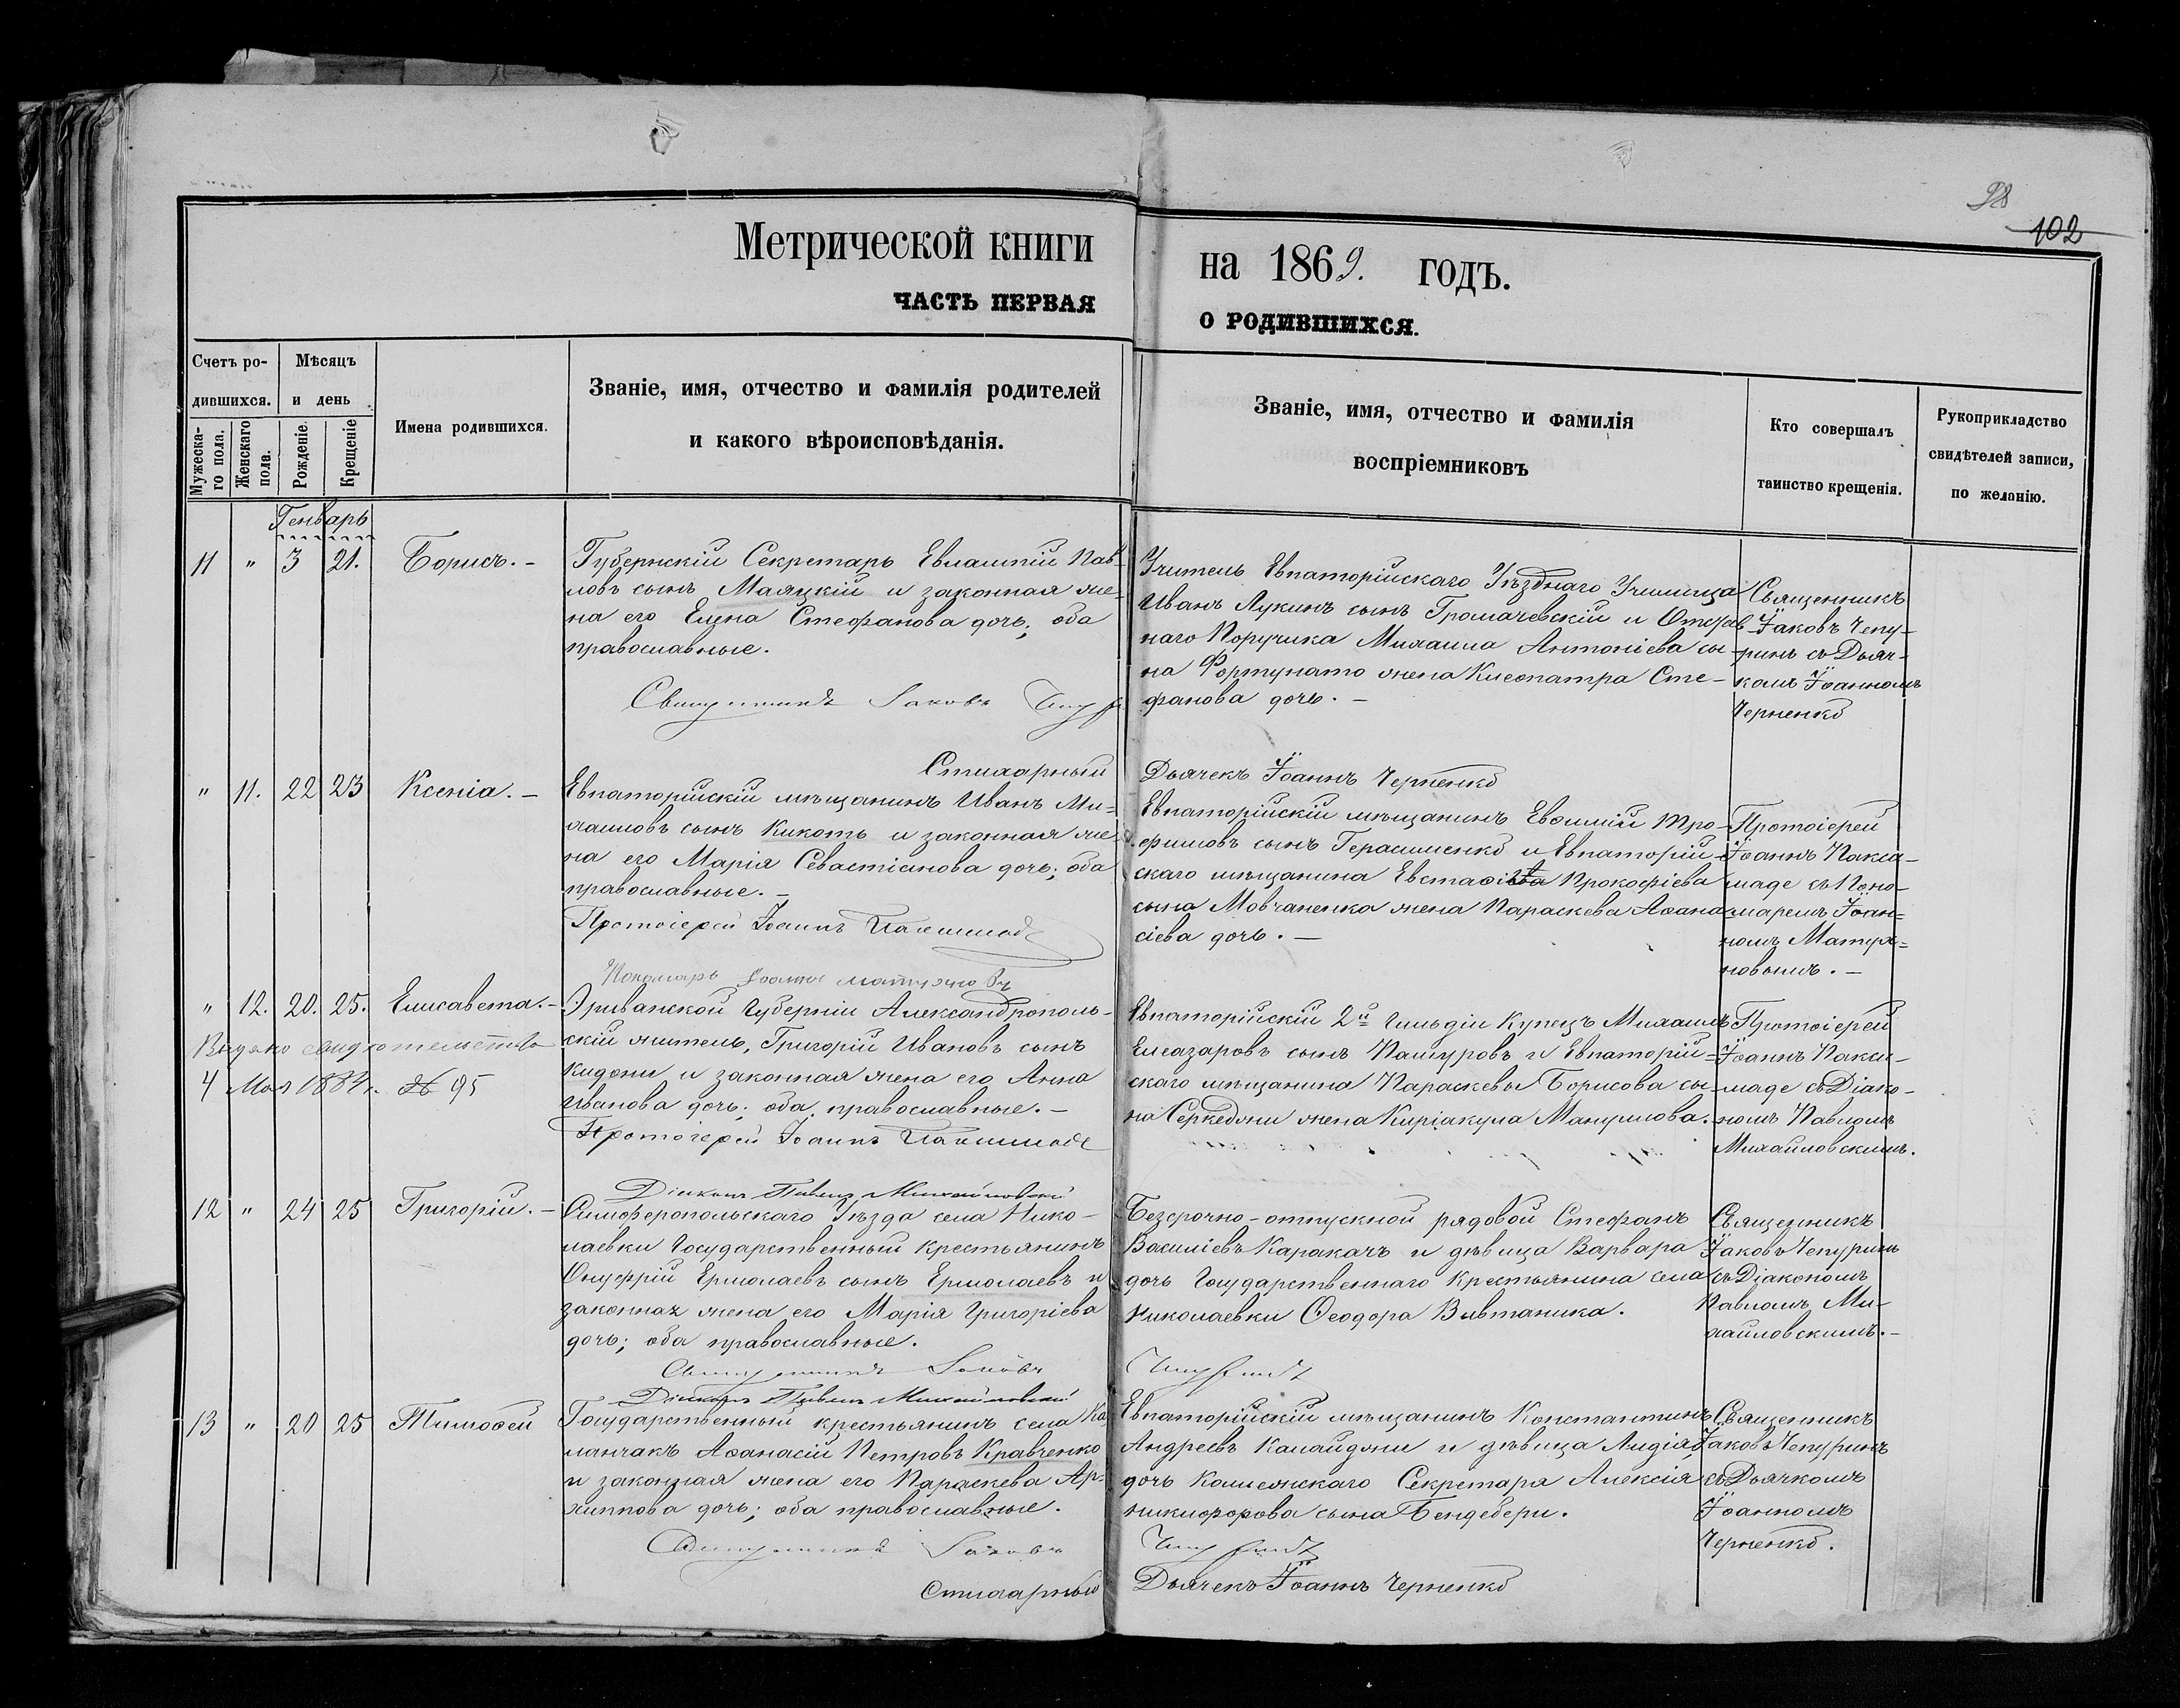 98
102
Метрической книги
на 1869. годъ.
ЧАСТЬ ПЕРВАЯ
О РОДИВШИХСЯ.
Счетъ ро-
дившихся.
Мужеска-
го пола.
Женскаго
пола.
Мѣсяцъ
и день
Рожденіе.
Крещеніе
Имена родившихся.
Званіе, имя, отчество и фамилія родителей
и какого вѣроисповѣданія.
Званіе, имя, отчество и фамилія
воспріемниковъ
Кто совершалъ
таинство крещенія.
Рукоприкладство
свидѣтелей записи,
по желанію.
Генварь
11 " 3 21. Борисъ. -
Губернскій Секретарь Евлампій Пав-
ловъ сынъ Маяцкій и законная же-
на его Елена Стефанова дочь; оба
православные.
Священникъ Іаковъ
Учитель Евпаторійскаго Уѣзднаго Училища
Иванъ Лукинъ сынъ Громачевскій и Отстав
наго Поручика Михаила Антоніева сы-
на Фортунато жена Клеопатра Сте-
фанова дочь. -
Священникъ
Іаковъ Чепу-
ринъ съ Дьяч-
комъ Іоанномъ
Черненко
Стихарный
Дьячекъ Іоаннъ Черненко
" 11. 22 23 Ксенія. -
Евпаторійскій мѣщанинъ Иванъ Ми-
хаиловъ сынъ Кикоть и законная же-
на его Марія Севастіанова дочь; оба
православные. -
Протоіерей Іоаннъ Паксимаде
Пономарь Іоаннъ Матуяновъ
Евпаторійскій мѣщанинъ Евѳимій Тро-
фимовъ сынъ Герасименко и Евпаторій-
скаго мѣщанина Евстаѳіева Прокофіева
сына Мовчаненка жена Параскева Аѳана-
сіева дочь. -
Протоіерей
Іоаннъ Пакси-
маде съ Поно-
маремъ Іоан-
номъ Матуя-
новымъ. -
" 12. 20. 25. Елисавета. -
Выдано свидѣтельство
4 Мая 1884 г. № 95
Эриванской Губерніи Александрополь-
скій житель, Григорій Ивановъ сынъ
Кидони и законная жена его Анна
Иванова дочь; оба православные. -
Протоіерей Іоаннъ Паксимаде
Діаконъ Павелъ Михайловскій
Евпаторійскій 2й Гильдіи Купецъ Михаилъ
Елеазаровъ сынъ Пашуровъ и Евпаторій-
скаго мѣщанина Параскевы Борисова сы-
на Серкедони жена Киріакула Мануилова.
Протоіерей
Іоаннъ Пакси-
маде съ Діако-
номъ Павломъ
Михайловскимъ.
12 " 24 25 Григорій. -
Симферопольскаго Уѣзда села Нико-
лаевки Государственный крестьянинъ
Онуфрій Ермолаевъ сынъ Ермолаевъ и
законная жена его Марія Григоріева
дочь; оба православные.
Священникъ Іаковъ Чепуринъ
Діаконъ Павелъ Михайловскій
Безсрочно-отпускной рядовой Стефанъ
Василіевъ Каракачъ и дѣвица Варвара
дочь Государственнаго крестьянина села
Николаевки Ѳеодора Вивтаника.
Священникъ
Іаковъ Чепуринъ
съ Діакономъ
Павломъ Ми-
хайловскимъ. -
13 " 20 25 Тимоѳей
Государственный крестьянинъ села Ка
ланчакъ Аѳанасій Петровъ Кравченко
и законная жена его Параскева Ар-
хиппова дочь; оба православные.
Священникъ Іаковъ Чепуринъ
Стихарный Дьячекъ Іоаннъ Черненко
Евпаторійскій мѣщанинъ Константинъ
Андреевъ Калайдони и дѣвица Лидія,
дочь Коллежскаго Секретаря Алексія
Никифорова сына Бендебери.
Священникъ
Іаковъ Чепуринъ
съ Дьячкомъ
Іоанномъ
Черненко.